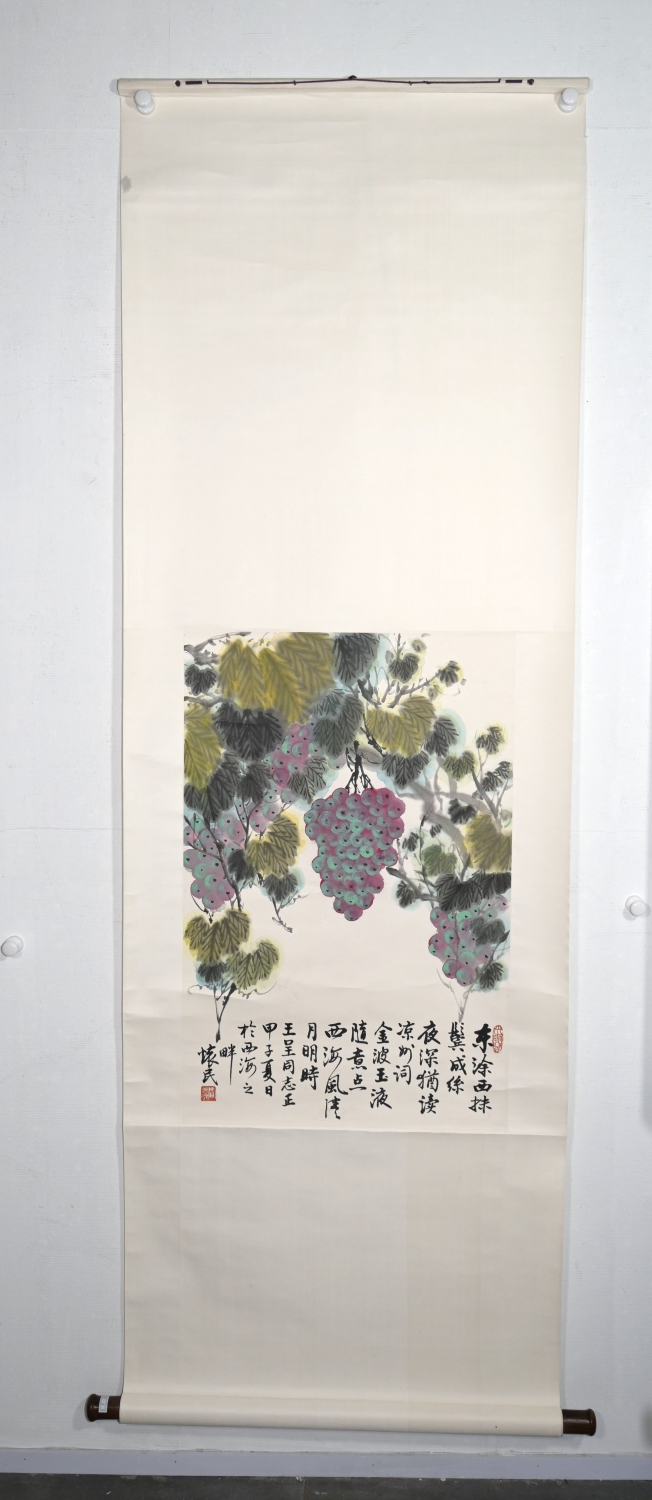 东涂西抹
鬓成丝
夜深犹读
凉州词
金波玉液
随意点
西海风清
月明時
王呈同志正
甲子夏日
於西海之
畔
怀民